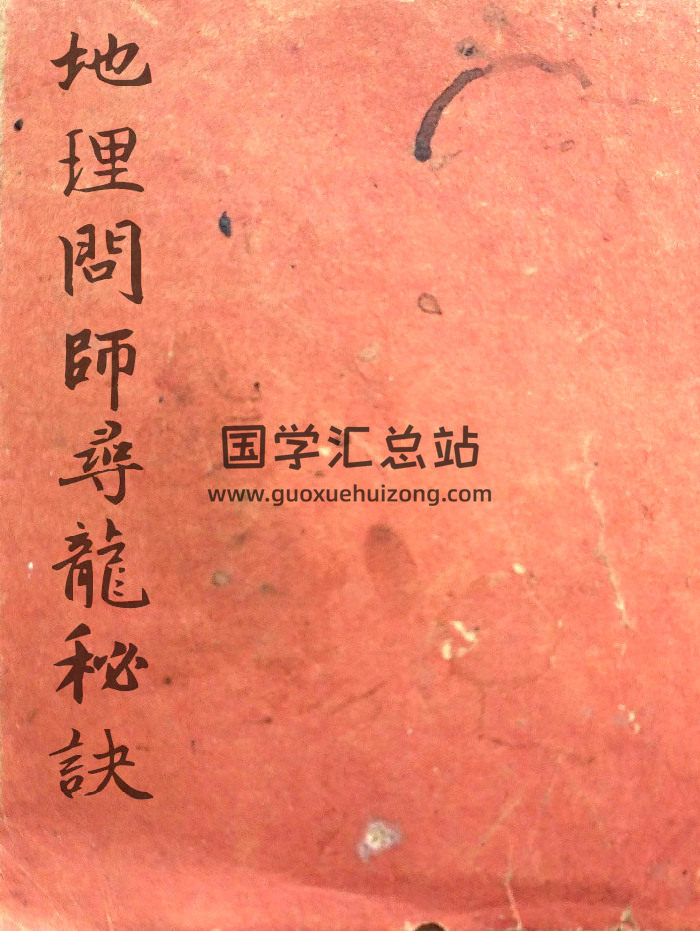 地理問師尋龍秘訣
国学汇总站
www.guoxuehuizong.com